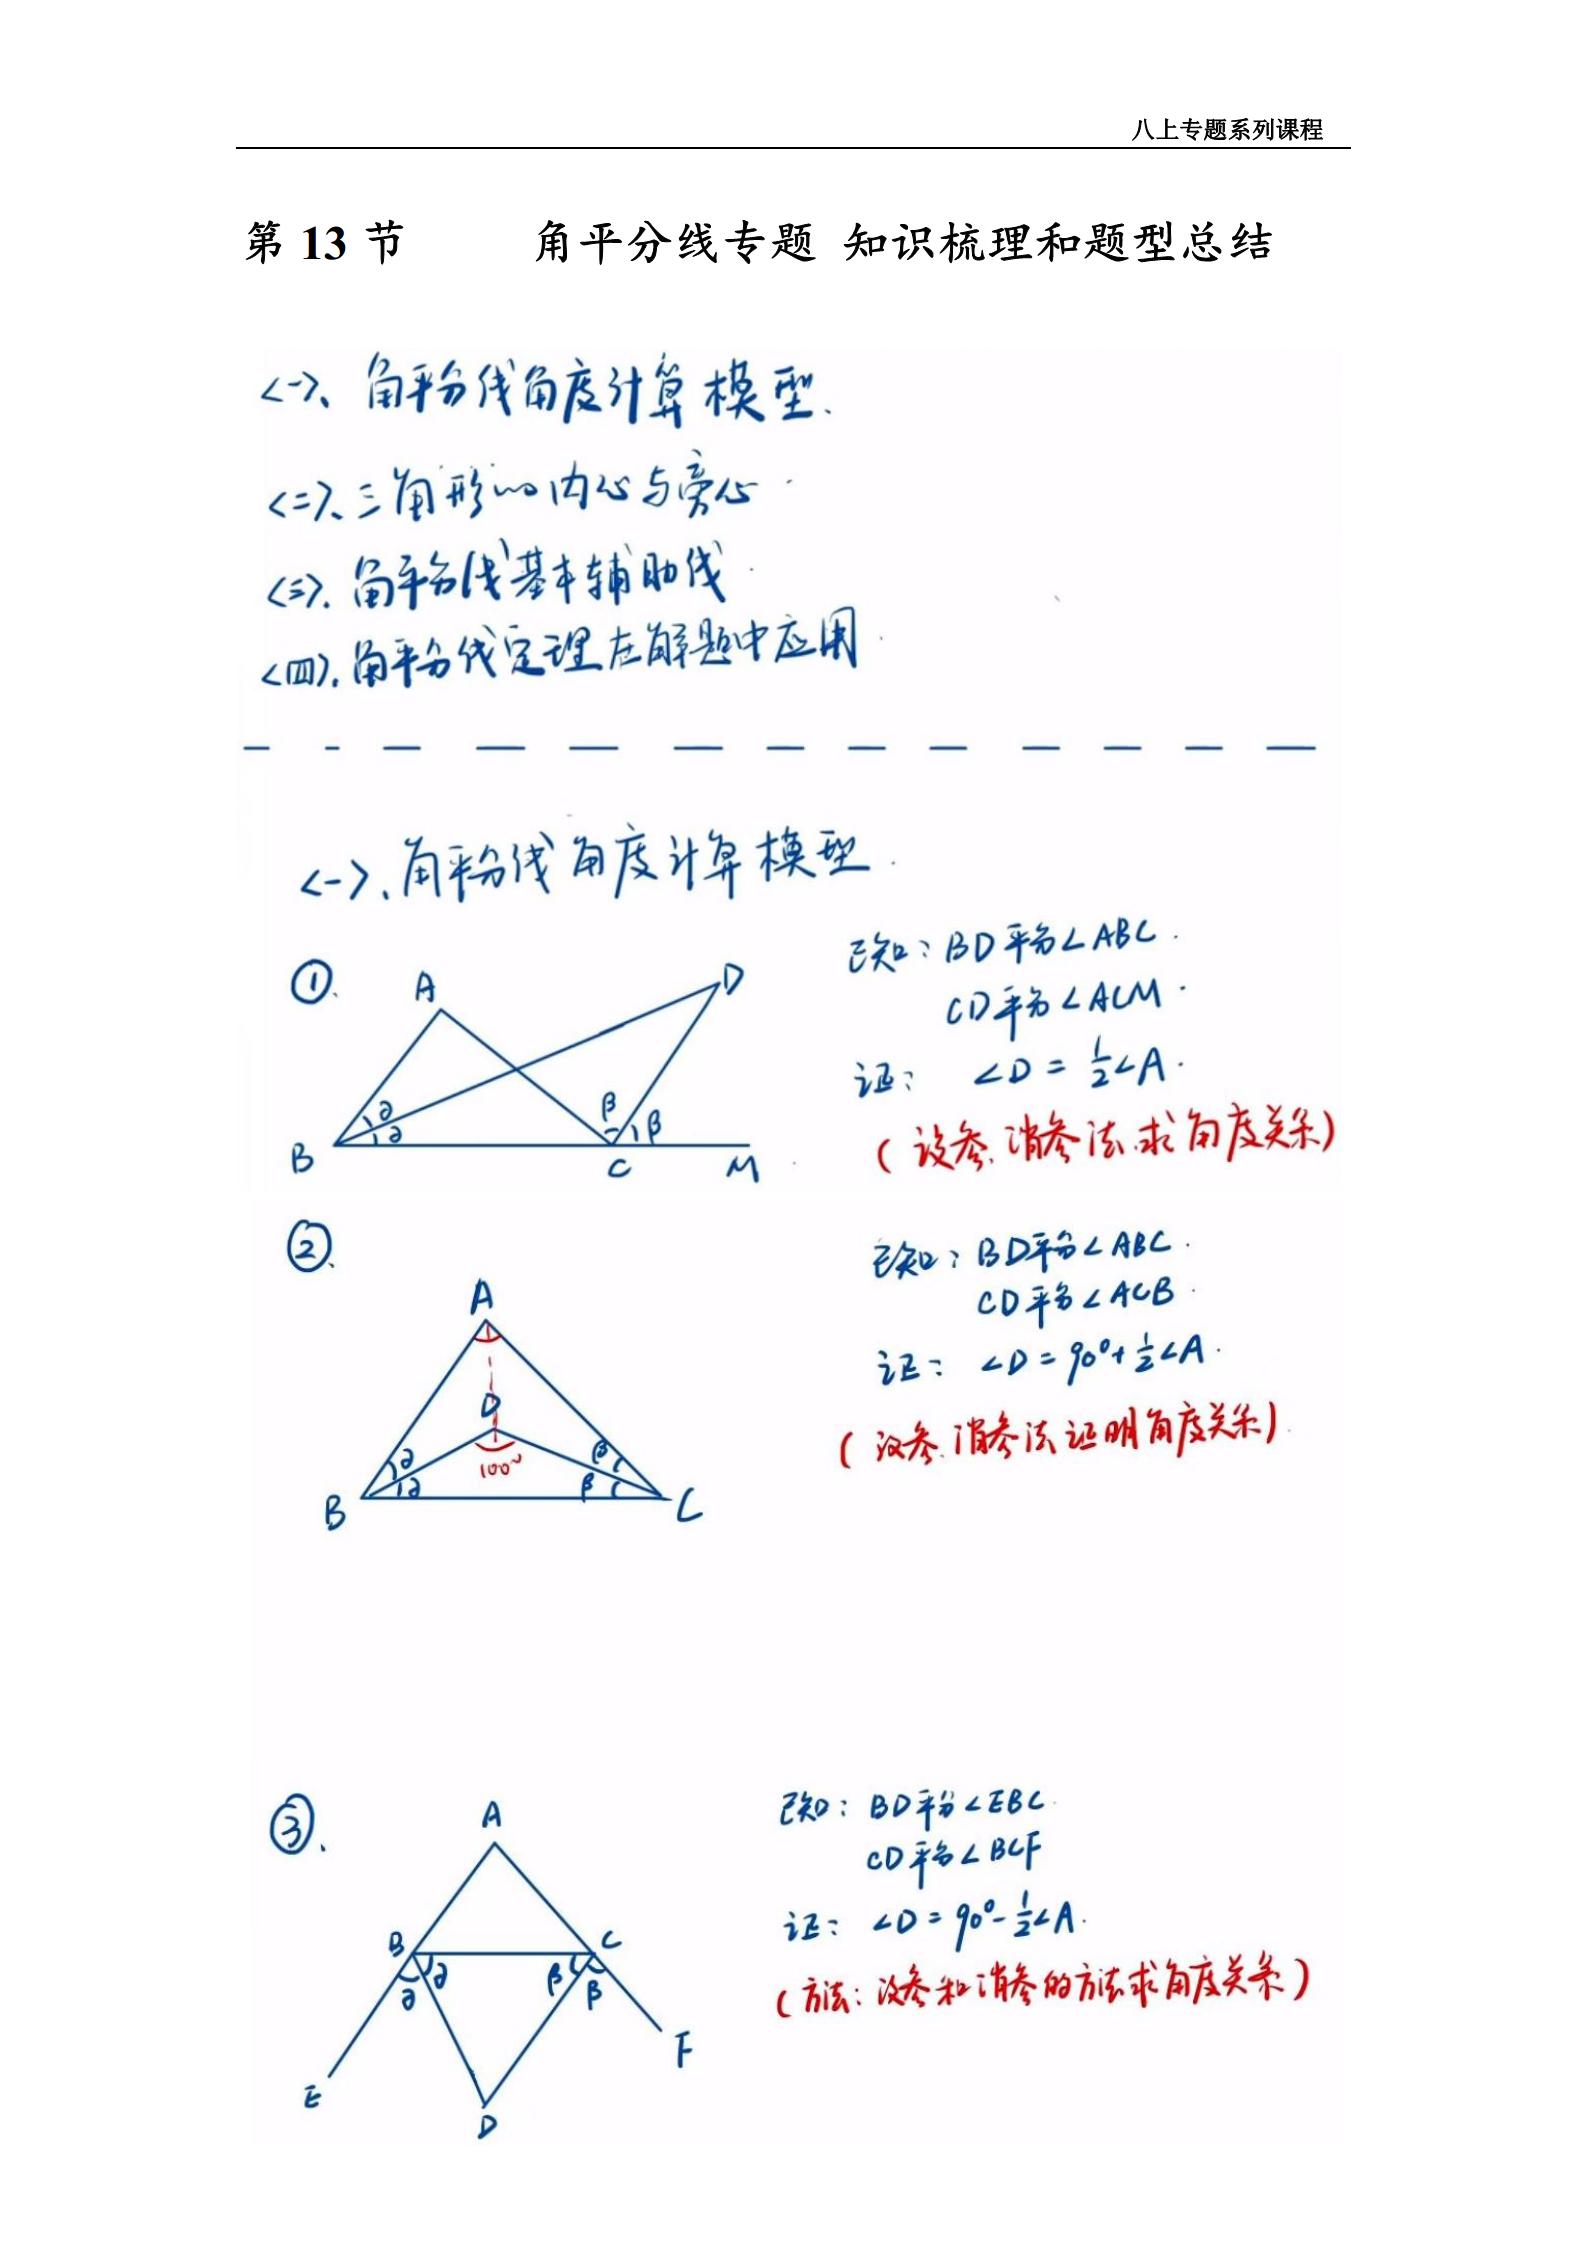 八上专题系列课程
第 13 节 角平分线专题 知识梳理和题型总结
<一>、角平分线角度计算模型.
<二>、三角形的内心与旁心.
<三>. 角平分线基本辅助线.
<四>. 角平分线定理在解题中应用.
<一>、角平分线角度计算模型.
①、
A
D
B
C
M
∂
∂
β
β
已知: BD平分∠ABC.
CD平分∠ACM.
证: ∠D = 1/2∠A.
(设参、消参法求角度关系)
②、
A
D
100°
B
C
∂
∂
β
β
已知: BD平分∠ABC.
CD平分∠ACB.
证: ∠D = 90°+1/2∠A.
(设参、消参法证明角度关系)
③、
A
B
C
∂
∂
β
β
E
F
D
已知: BD平分∠EBC.
CD平分∠BCF
证: ∠D = 90°-1/2∠A.
(方法: 设参和消参的方法求角度关系)